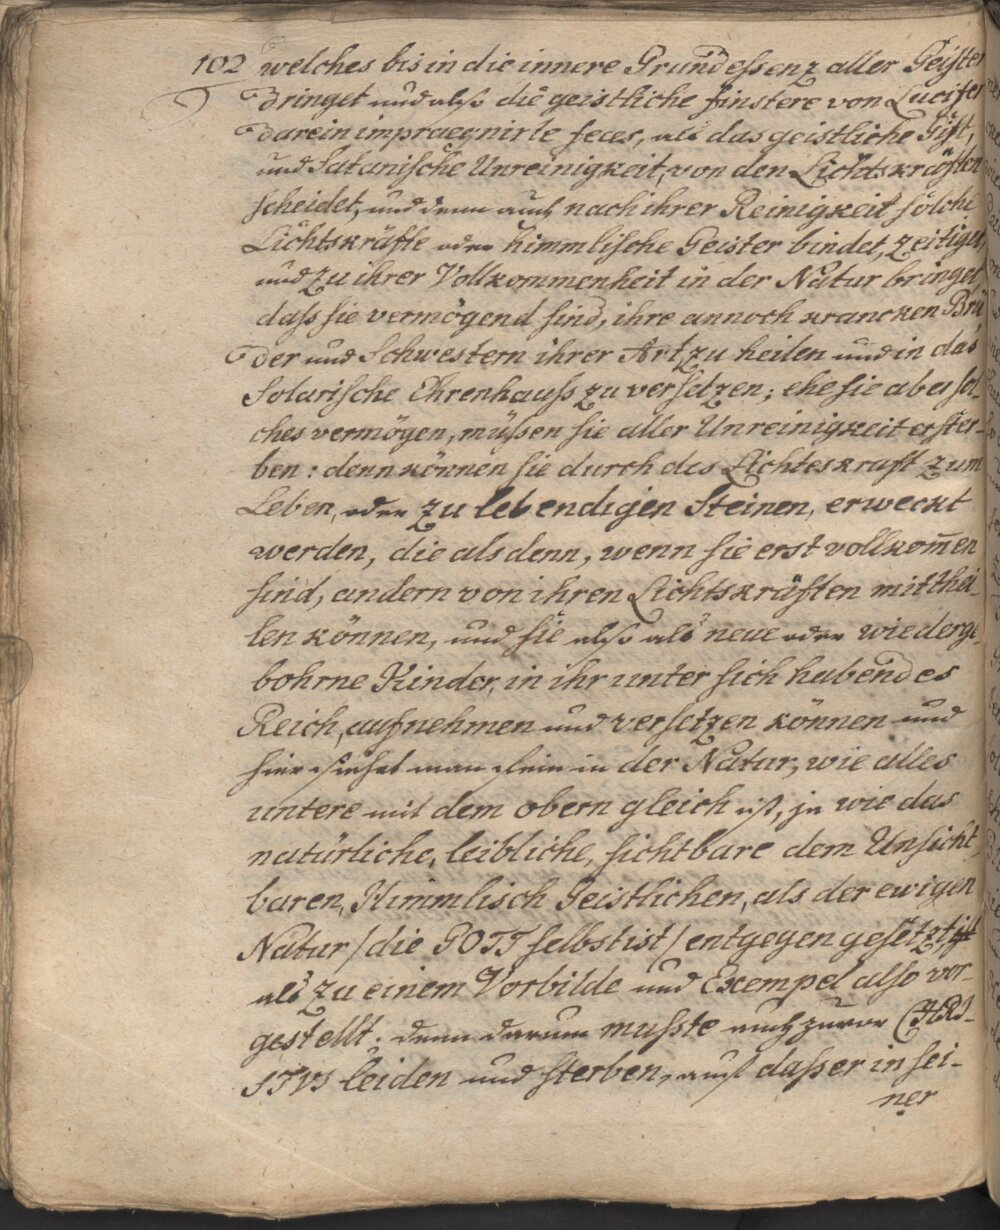 102 welches bis in die innere Grund eßenz aller Geister
dringet und also die geistliche finstere von Lucifer
darein impraegnirte feces, als das geistliche Gift,
und Satanische Unreinigkeit, von den Lichtskräften
scheidet, und denn auch nach ihrer Reinigkeit solche
Lichtskräfte oder himmlische Geister bindet, zeitiget
und zu ihrer Vollkommenheit in der Natur bringet,
daß sie vermögend sind, ihre annoch krancken Brü
der und Schwestern ihrer Art zu heilen und in das
Solarische Ehrenhauß zu versetzen; ehe sie aber sol-
ches vermögen, müßen sie aller Unreinigkeit erster-
ben: denn können sie durch des Lichtes kraft zum
Leben, oder zu lebendigen Steinen, erweckt
werden, die als denn, wenn sie erst vollkom̄en
sind, andern von ihren Lichtskräften mitthei-
len können, und sie also als neue oder wiederge-
bohrne Kinder, in ihr unter sich habendes
Reich, aufnehmen und versetzen können und
hier siehet man fein in der Natur, wie alles
untere mit dem obern gleich ist, ja wie das
natürliche, leibliche, sichtbare dem Unsicht-
baren, Himmlisch Geistlichen, als der ewigen
Natur /die GOTT selbst ist/ entgegen gesetzt ist
als zu einem Vorbilde und Exempel also vor-
gestellt. denn darum mußte auch zuvor CHRI-
STVS leiden und sterben, auf daß er in sei-
ner